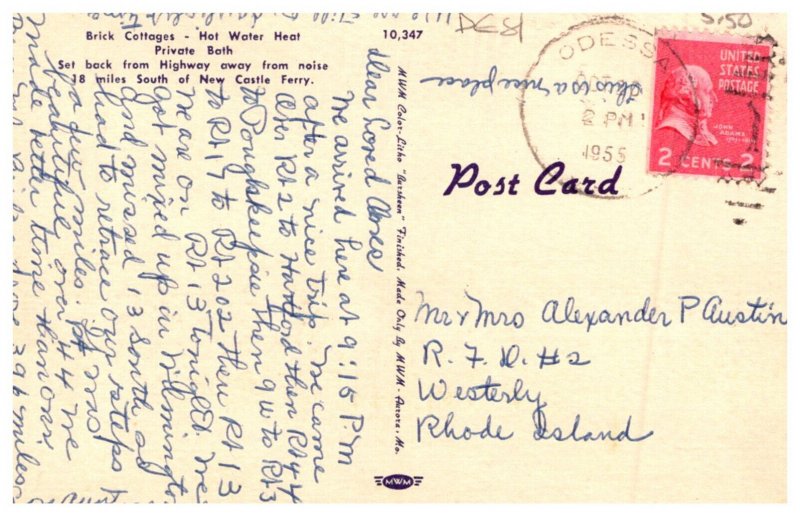 Brick Cottages - Hot Water Heat
Private Bath
Set back from Highway away from noise
18 miles South of New Castle Ferry.
10,347
Dear Loved Ones
We arrived here at 9:15 P.M
after a nice trip. We came
over Rt 2 to Hartford then Rt 44
to Poughkeepsie then 9W to Rt 3
to Rt 17 to Rt 202 then Rt 13
We are on Rt 13 tonight. We
got mixed up in Wilmington
and missed 13 South so
had to retrace our steps
a few miles. It was
beautiful over 44 we
made better time than on
396 miles
This is a nice place
MWM Color-Litho "Aursheen" Finished. Made Only By MWM - Aurora, Mo.
MWM
Post Card
ODESSA
2 PM
1955
UNITED
STATES
POSTAGE
JOHN
ADAMS
2 CENTS 2
Mr & Mrs Alexander P Austin
R. F. D. #2
Westerly
Rhode Island